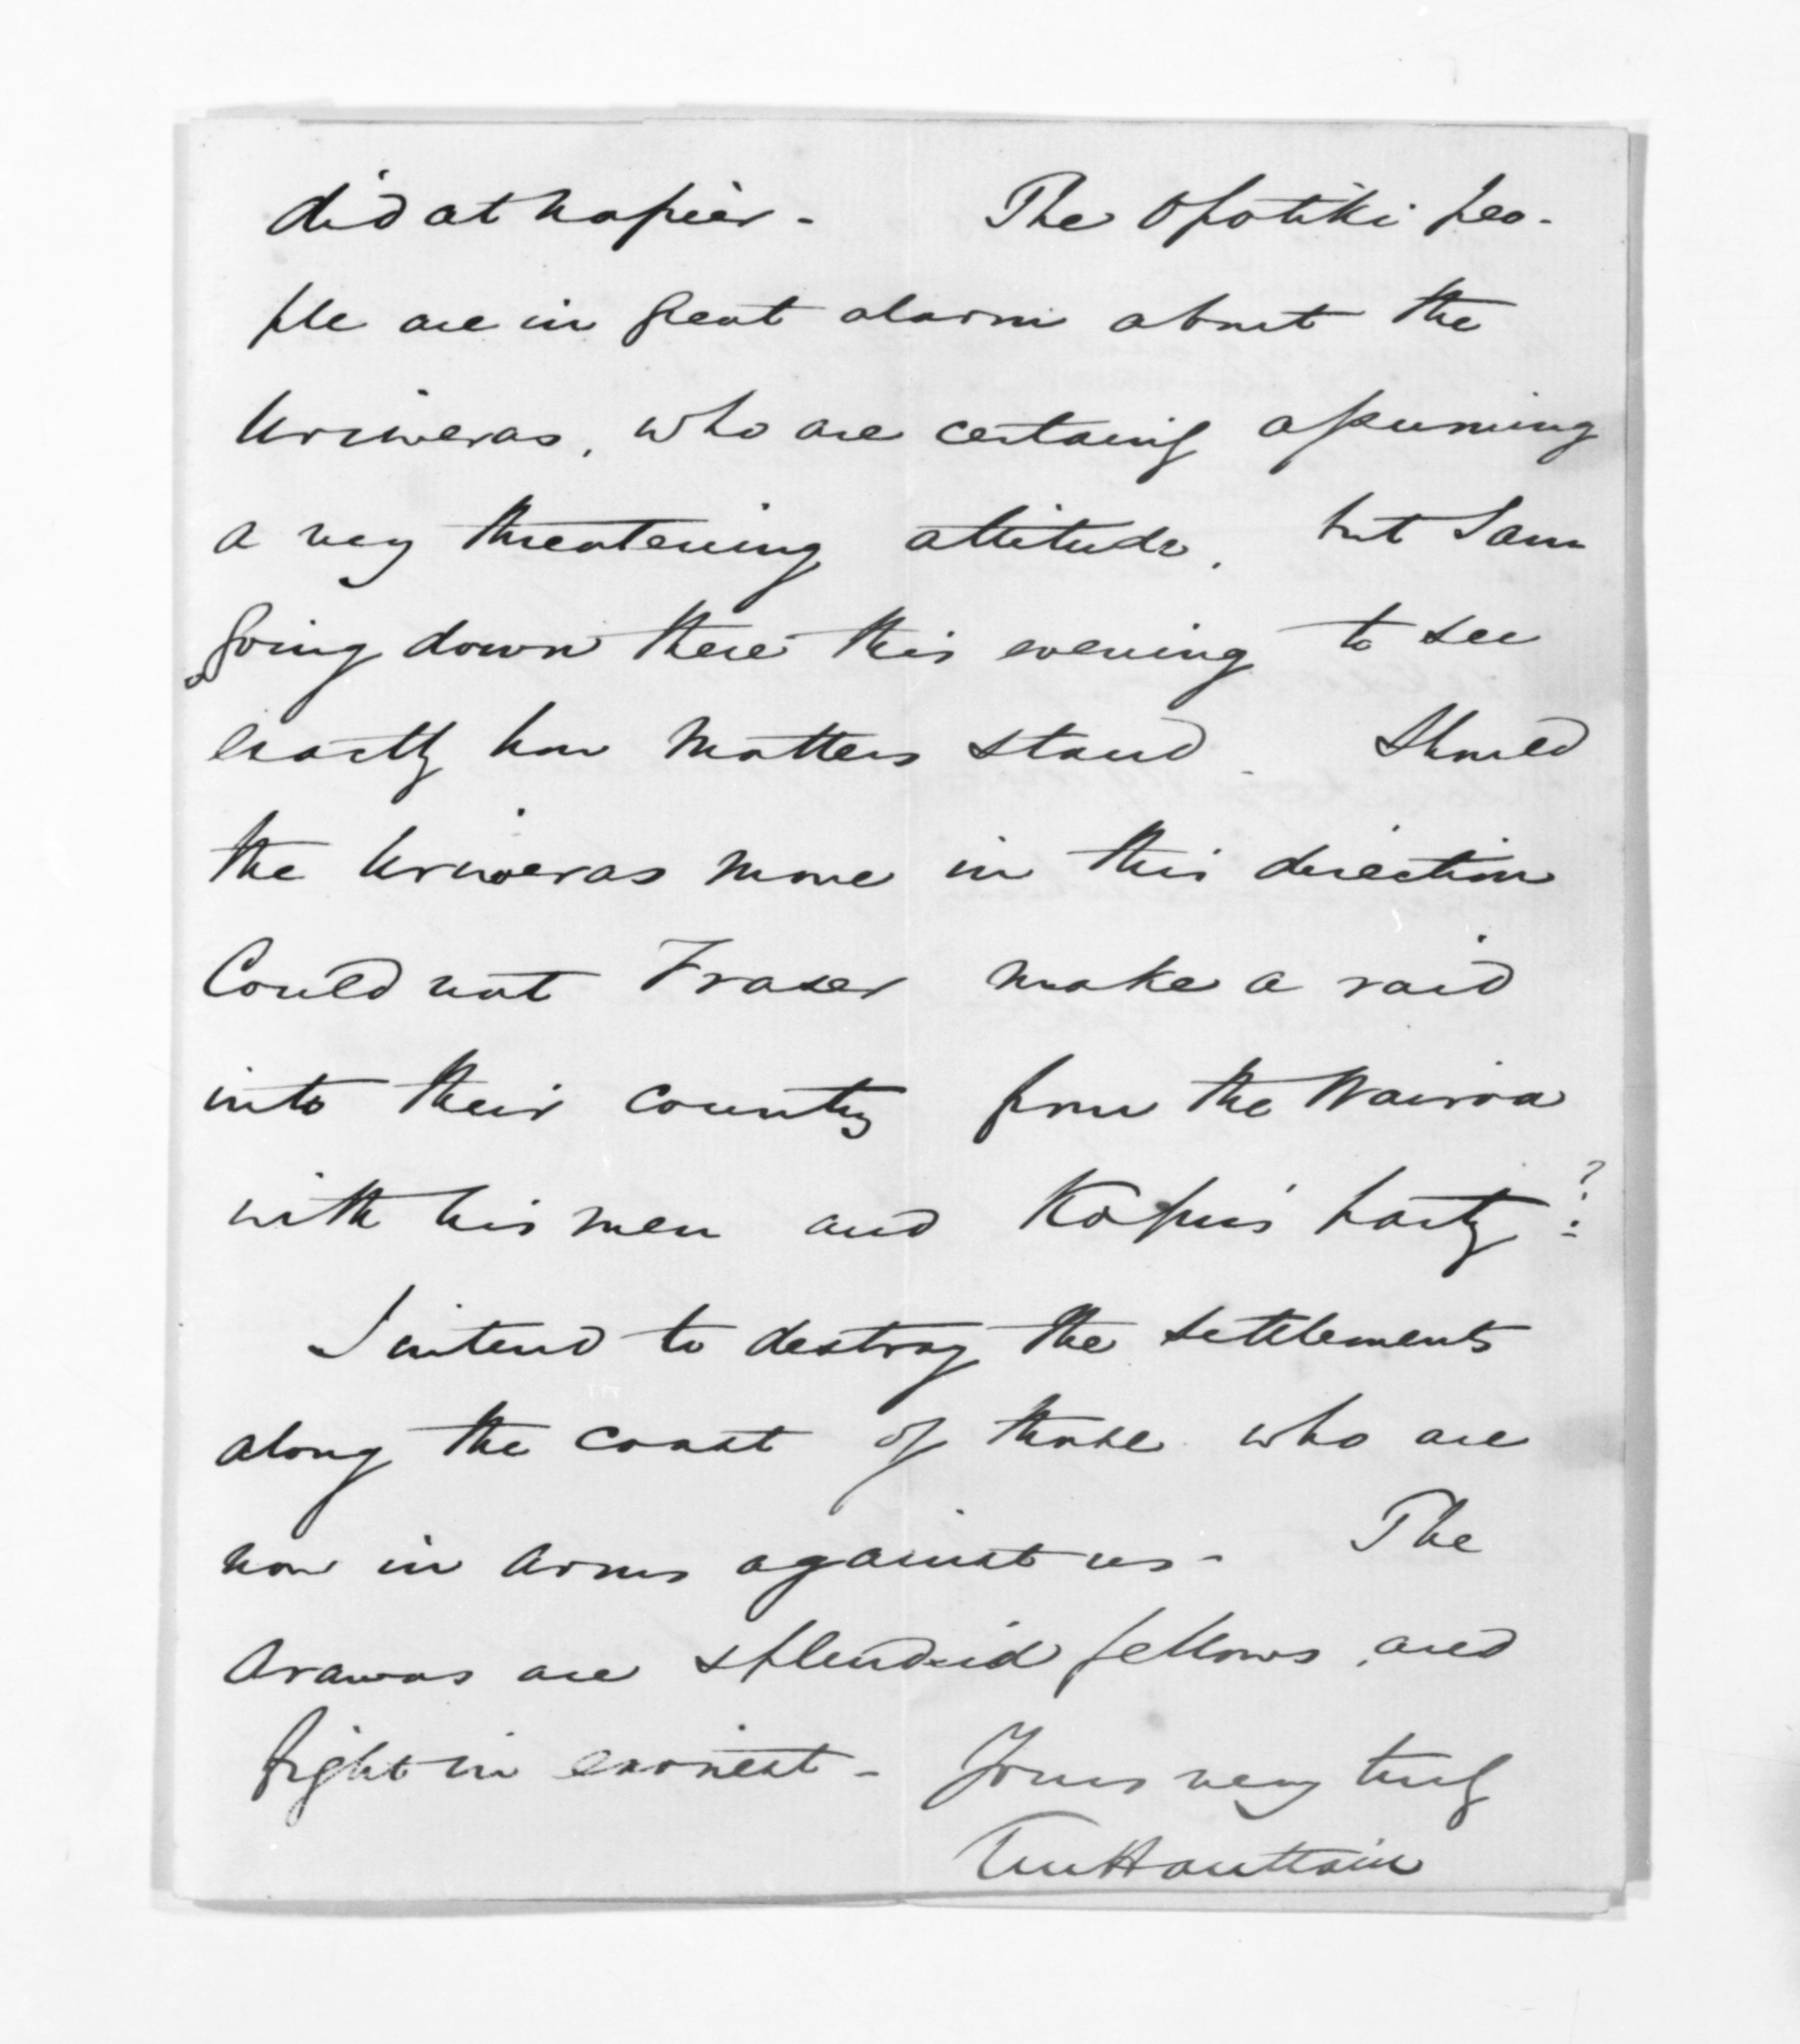 did at Napier - The Opotiki peo-
ple are in great alarm about the
Uriweras, who are certainly assuming
a very threatening attitude, but I am
going down there this evening to see
exactly how matters stand - Should
the Uriweras move in this direction
Could not Fraser make a raid
into their country from the Wairoa
with his men and Kopu's party?
I intend to destroy the settlements
along the coast of those who are
now in arms against us - The
Arawas are splendid fellows, and
fight in earnest - Yours very truly
Haultain